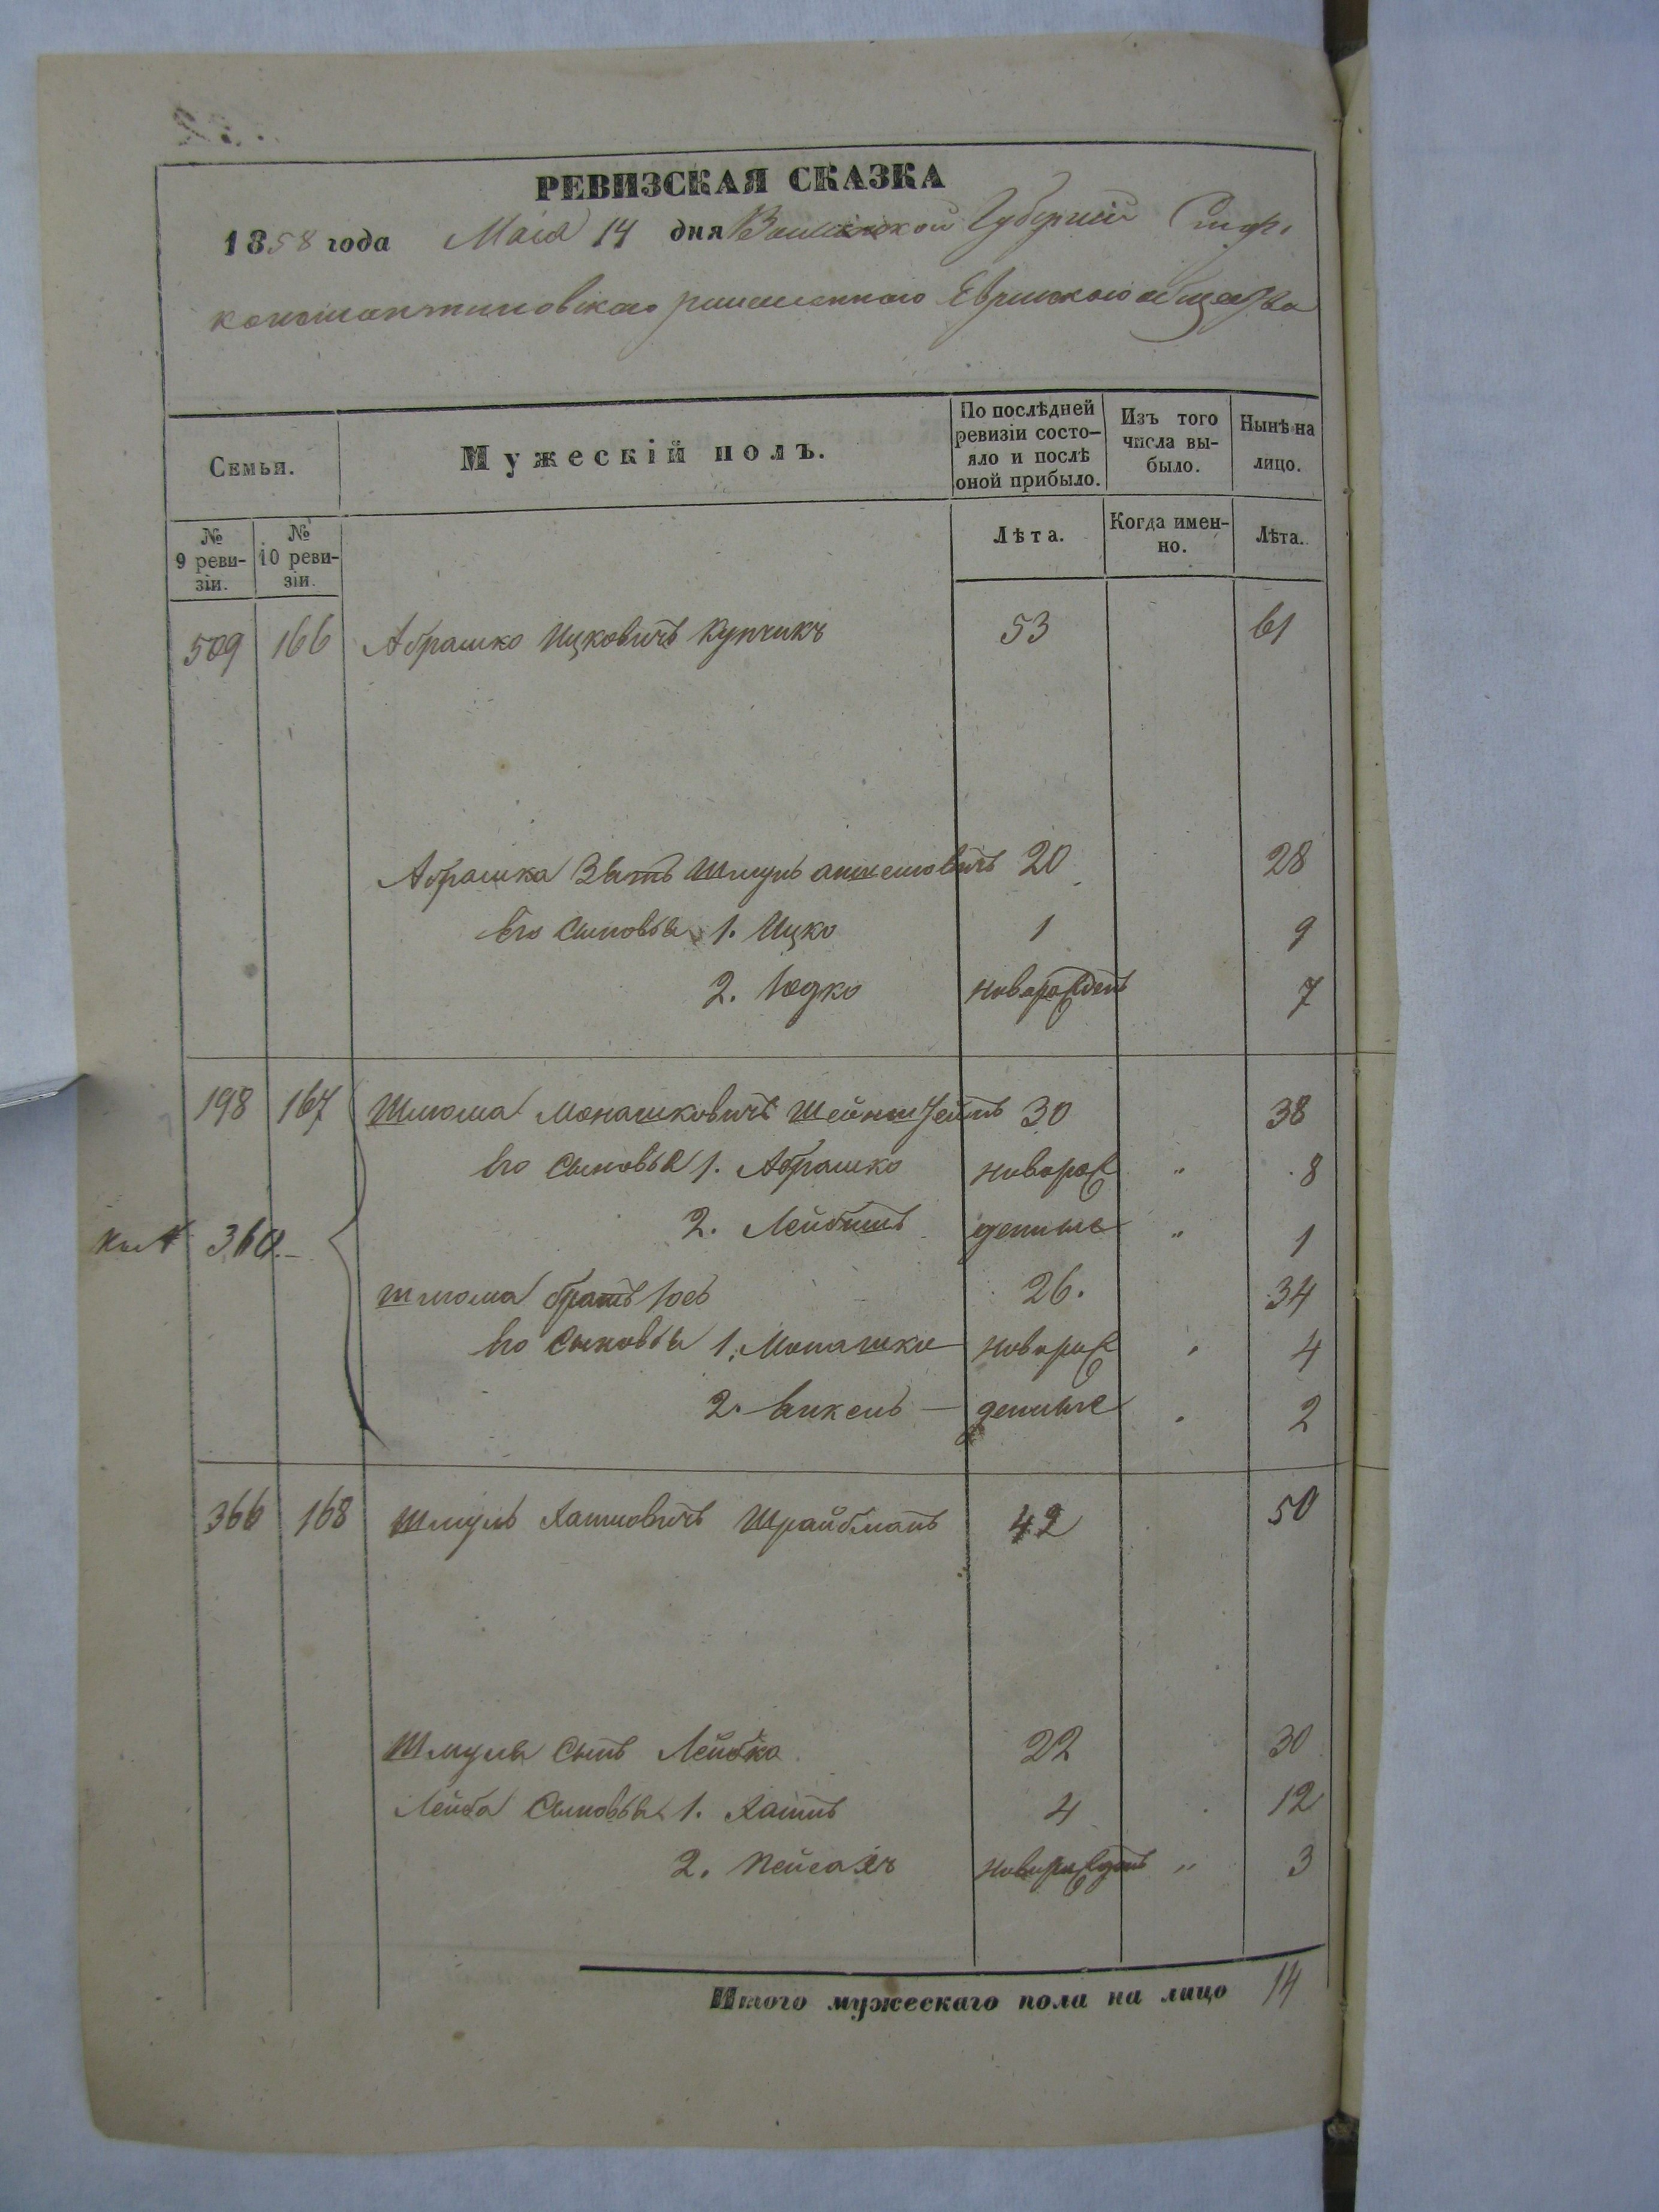 РЕВИЗСКАЯ СКАЗКА
1858 года Маія 14 дня Волынской Губерніи Старо
константиновскаго Еврейскаго общества
Семьи.
Мужескій полъ.
По послѣдней ревизіи состо-яло и послѣ оной прибыло.
Изъ того числа вы-было.
Нынѣ на лицо.
№ 9 реви-зіи.
№ 10 реви-зіи.
Лѣта.
Когда имен-но.
Лѣта.
509 166 Абрашко Ицковичъ Купчикъ 53 61
Абрашка Зять Шмуль 20 28
Его Сыновья 1. Ицко 1 9
2. Юдко новорожденъ 7
198 167 Шлюма Монашковичъ 30 38
Его Сыновья 1. Абрашко новорож " 8
2. Лейбишъ денные " 1
360.
Шлюма братъ Юсь 26. 34
Его Сыновья 1. Монашко новорож " 4
2. денные " 2
366 168 Шмуль Хаимовичъ Шрайбманъ 42 50
Шмуля Сынъ Лейбко 22 30
Лейба Сыновья 1. Хаимъ 4 12
2. Пейсахъ новорожденъ " 3
Итого мужескаго пола на лицо 14